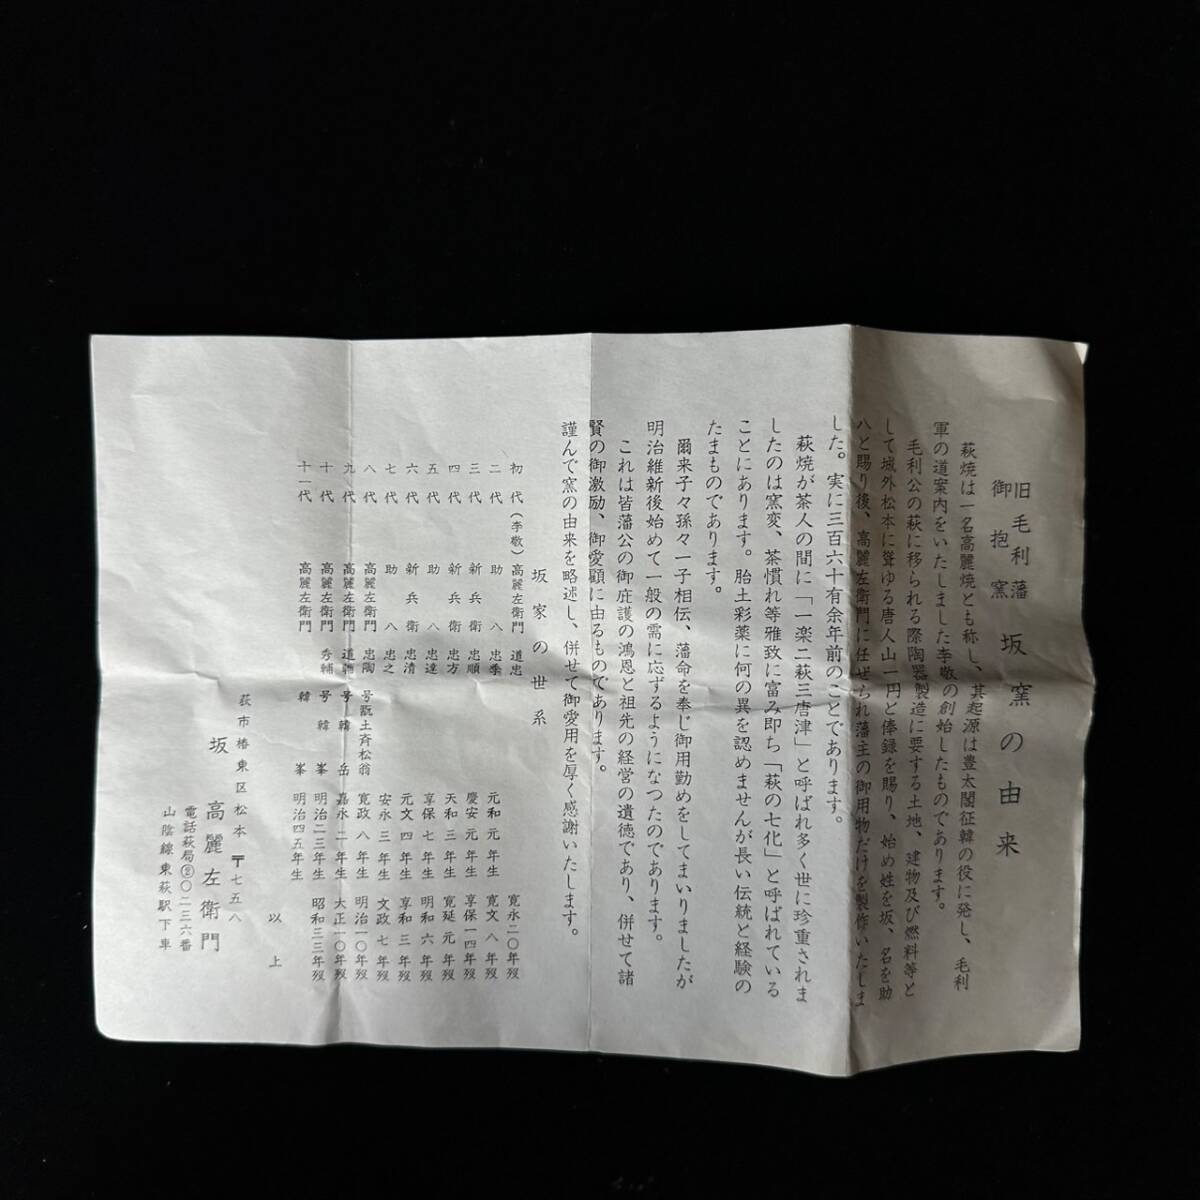 旧毛利藩
御抱窯 坂窯の由来
萩焼は一名高麗焼とも称し、其起源は豊太閤征韓の役に発し、毛利
軍の道案内をいたしました李敬の創始したものであります。
毛利公の萩に移られる際陶器製造に要する土地、建物及び燃料等と
して城外松本に聳ゆる唐人山一円と俸録を賜り、始め姓を坂、名を助
八と賜り後、高麗左衛門に任ぜられ藩主の御用物だけを製作いたしま
した。実に三百六十有余年前のことであります。
萩焼が茶人の間に「一楽二萩三唐津」と呼ばれ多く世に珍重されま
したのは窯変、茶慣れ等雅致に富み即ち「萩の七化」と呼ばれている
ことにあります。胎土彩薬に何の異を認めませんが長い伝統と経験の
たまものであります。
爾来子々孫々一子相伝、藩命を奉じ御用勤めをしてまいりましたが
明治維新後始めて一般の需に応ずるようになつたのであります。
これは皆藩公の御庇護の鴻恩と祖先の経営の遺徳であり、併せて諸
賢の御激励、御愛顧に由るものであります。
謹んで窯の由来を略述し、併せて御愛用を厚く感謝いたします。
坂家の世系
初代(李敬) 高麗左衛門 道忠 寛永二〇年歿
二代 助八 忠季 元和元年生 寛文八年歿
三代 新兵衛 忠順 慶安元年生 享保一四年歿
四代 新兵衛 忠方 天和三年生 寛延元年歿
五代 助八 忠達 享保七年生 明和六年歿
六代 新兵衛 忠清 元文四年生 享和三年歿
七代 助八 忠之 安永三年生 文政七年歿
八代 高麗左衛門 忠陶 号翫土斉松翁 寛政八年生 明治一〇年歿
九代 高麗左衛門 道輔 号韓岳 嘉永二年生 大正一〇年歿
十代 高麗左衛門 秀輔 号韓峯 明治二三年生 昭和三三年歿
十一代 韓峯 明治四五年生
以上
萩市椿東区松本 〒七五八
坂高麗左衛門
電話萩局②〇二三六番
山陰線東萩駅下車